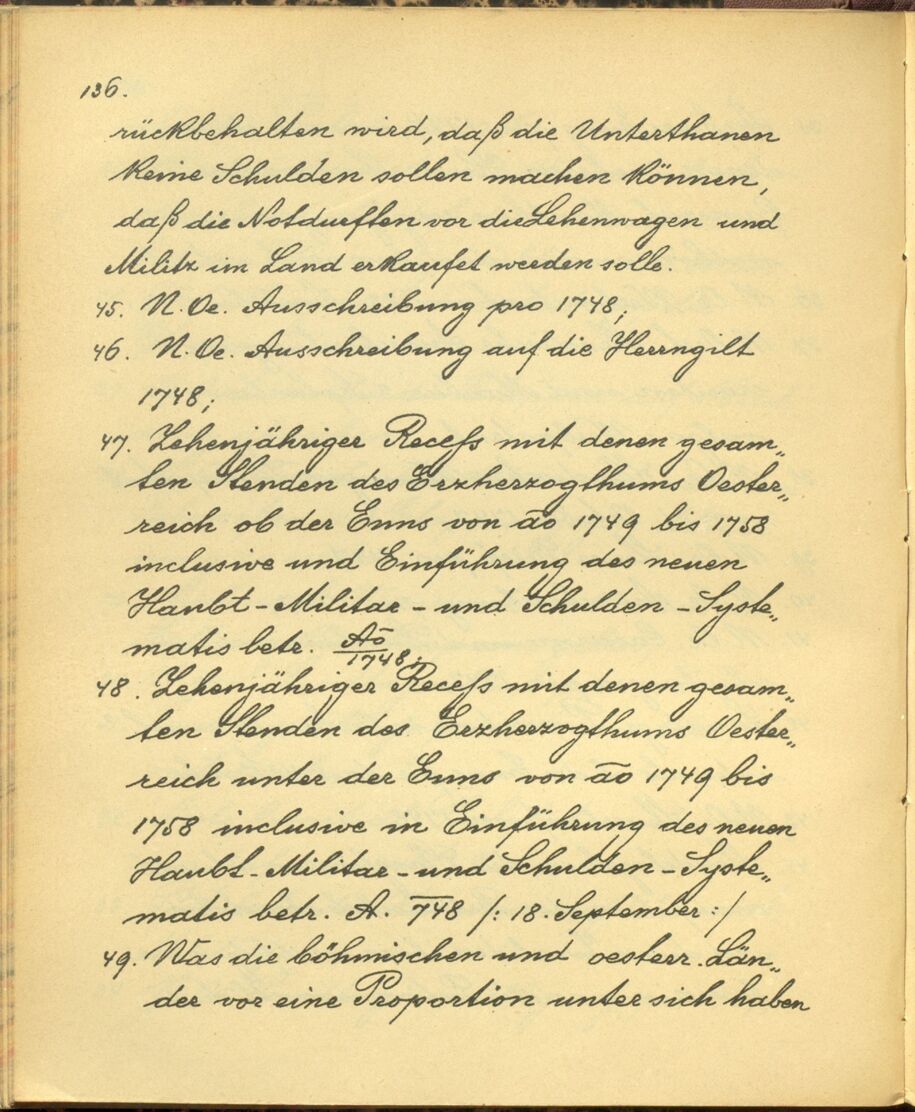 136.
rückbehalten wird, daß die Unterthanen
keine Schulden sollen machen können,
daß die Notdurften vor die Lehenwagen und
Militz im Land erkaufet werden solle.
45. N. Oe. Ausschreibung pro 1748;
46. N. Oe. Ausschreibung auf die Herrngilt
1748;
47. Zehenjähriger Recess mit denen gesam„
ten Stenden des Erzherzogthums Oester„
reich ob der Enns von āo 1749 bis 1758
inclusive und Einführung des neuen
Haubt-Militar- und Schulden-Syste„
matis betr. Aō
1748;
48. Zehenjähriger Recess mit denen gesam„
ten Stenden des Erzherzogthums Oester„
reich unter der Enns von āo 1749 bis
1758 inclusive in Einführung des neuen
Haubt-Militar-und Schulden-Syste„
matis betr. A. 748 /: 18. September :/
49. Was die böhmischen und oesterr. Län„
der vor eine Proportion unter sich haben